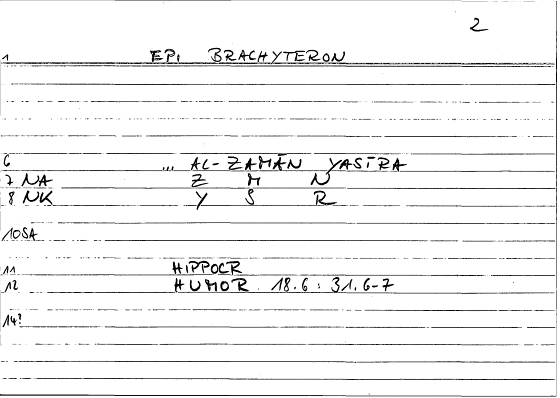 2
1 EPI BRACHYTERON
6 ... AL-ZAMĀN YASĪRA
7 NA Z M N
8 NK Y S R
10SA
11 HIPPOCR
12 HUMOR 18.6 : 31.6-7
14?